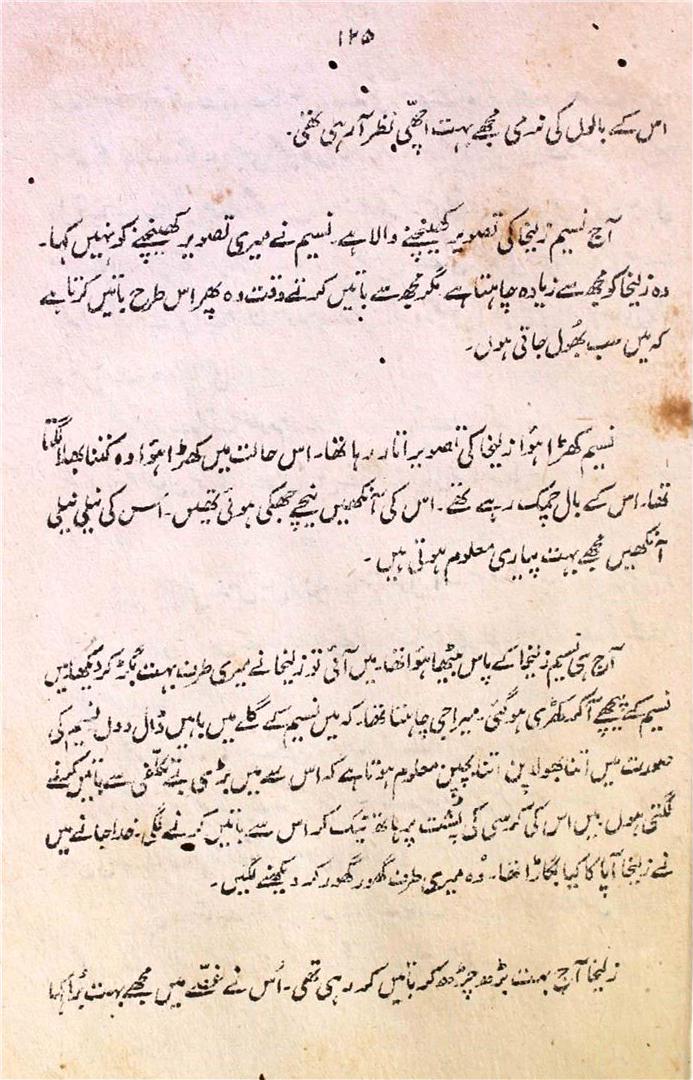 ۱۲۵
اس کے بالوں کی نرمی مجھے بہت اچھی نظر آ رہی تھی۔
آج نسیم زلیخا کی تصویر کھینچنے والا ہے۔ نسیم نے میری تصویر کھینچنے کو نہیں کہا۔
وہ زلیخا کو مجھ سے زیادہ چاہتا ہے مگر مجھ سے باتیں کرتے وقت وہ پھر اس طرح باتیں کرتا ہے
کہ میں سب بھُول جاتی ہوں۔
نسیم کھڑا ہؤا زلیخا کی تصویر اتار رہا تھا۔ اس حالت میں کھڑا ہؤا وہ کتنا بھلا لگتا
تھا۔ اس کے بال چمک رہے تھے۔ اس کی آنکھیں نیچے جھکی ہوئی تھیں۔ اُس کی نیلی نیلی
آنکھیں مجھے بہت پیاری معلوم ہوتی ہیں۔
آج ہی نسیم زلیخا کے پاس بیٹھا ہؤا تھا۔ میں آئی تو زلیخا نے میری طرف بہت بگڑ کر دیکھا۔ میں
نسیم کے پیچھے آ کر کھڑی ہو گئی۔ میرا جی چاہتا تھا۔ کہ میں نسیم کے گلے میں باہیں ڈال دوں نسیم کی
صورت میں اتنا بھولا پن اتنا بچپن معلوم ہوتا ہے کہ اس سے میں بڑی بے تکلفی سے باتیں کرنے
لگتی ہوں میں اس کی کرسی کی پُشت پر ہاتھ ٹیک کر اس سے باتیں کرنے لگی۔ خدا جانے میں
نے زلیخا آپا کا کیا بگاڑا تھا۔ وُہ میری طرف گھور گھور کر دیکھنے لگیں۔
زلیخا آج بہت بڑھ چڑھ کر باتیں کر رہی تھی۔ اُس نے غصّے میں مجھے بہت بُرا کہا